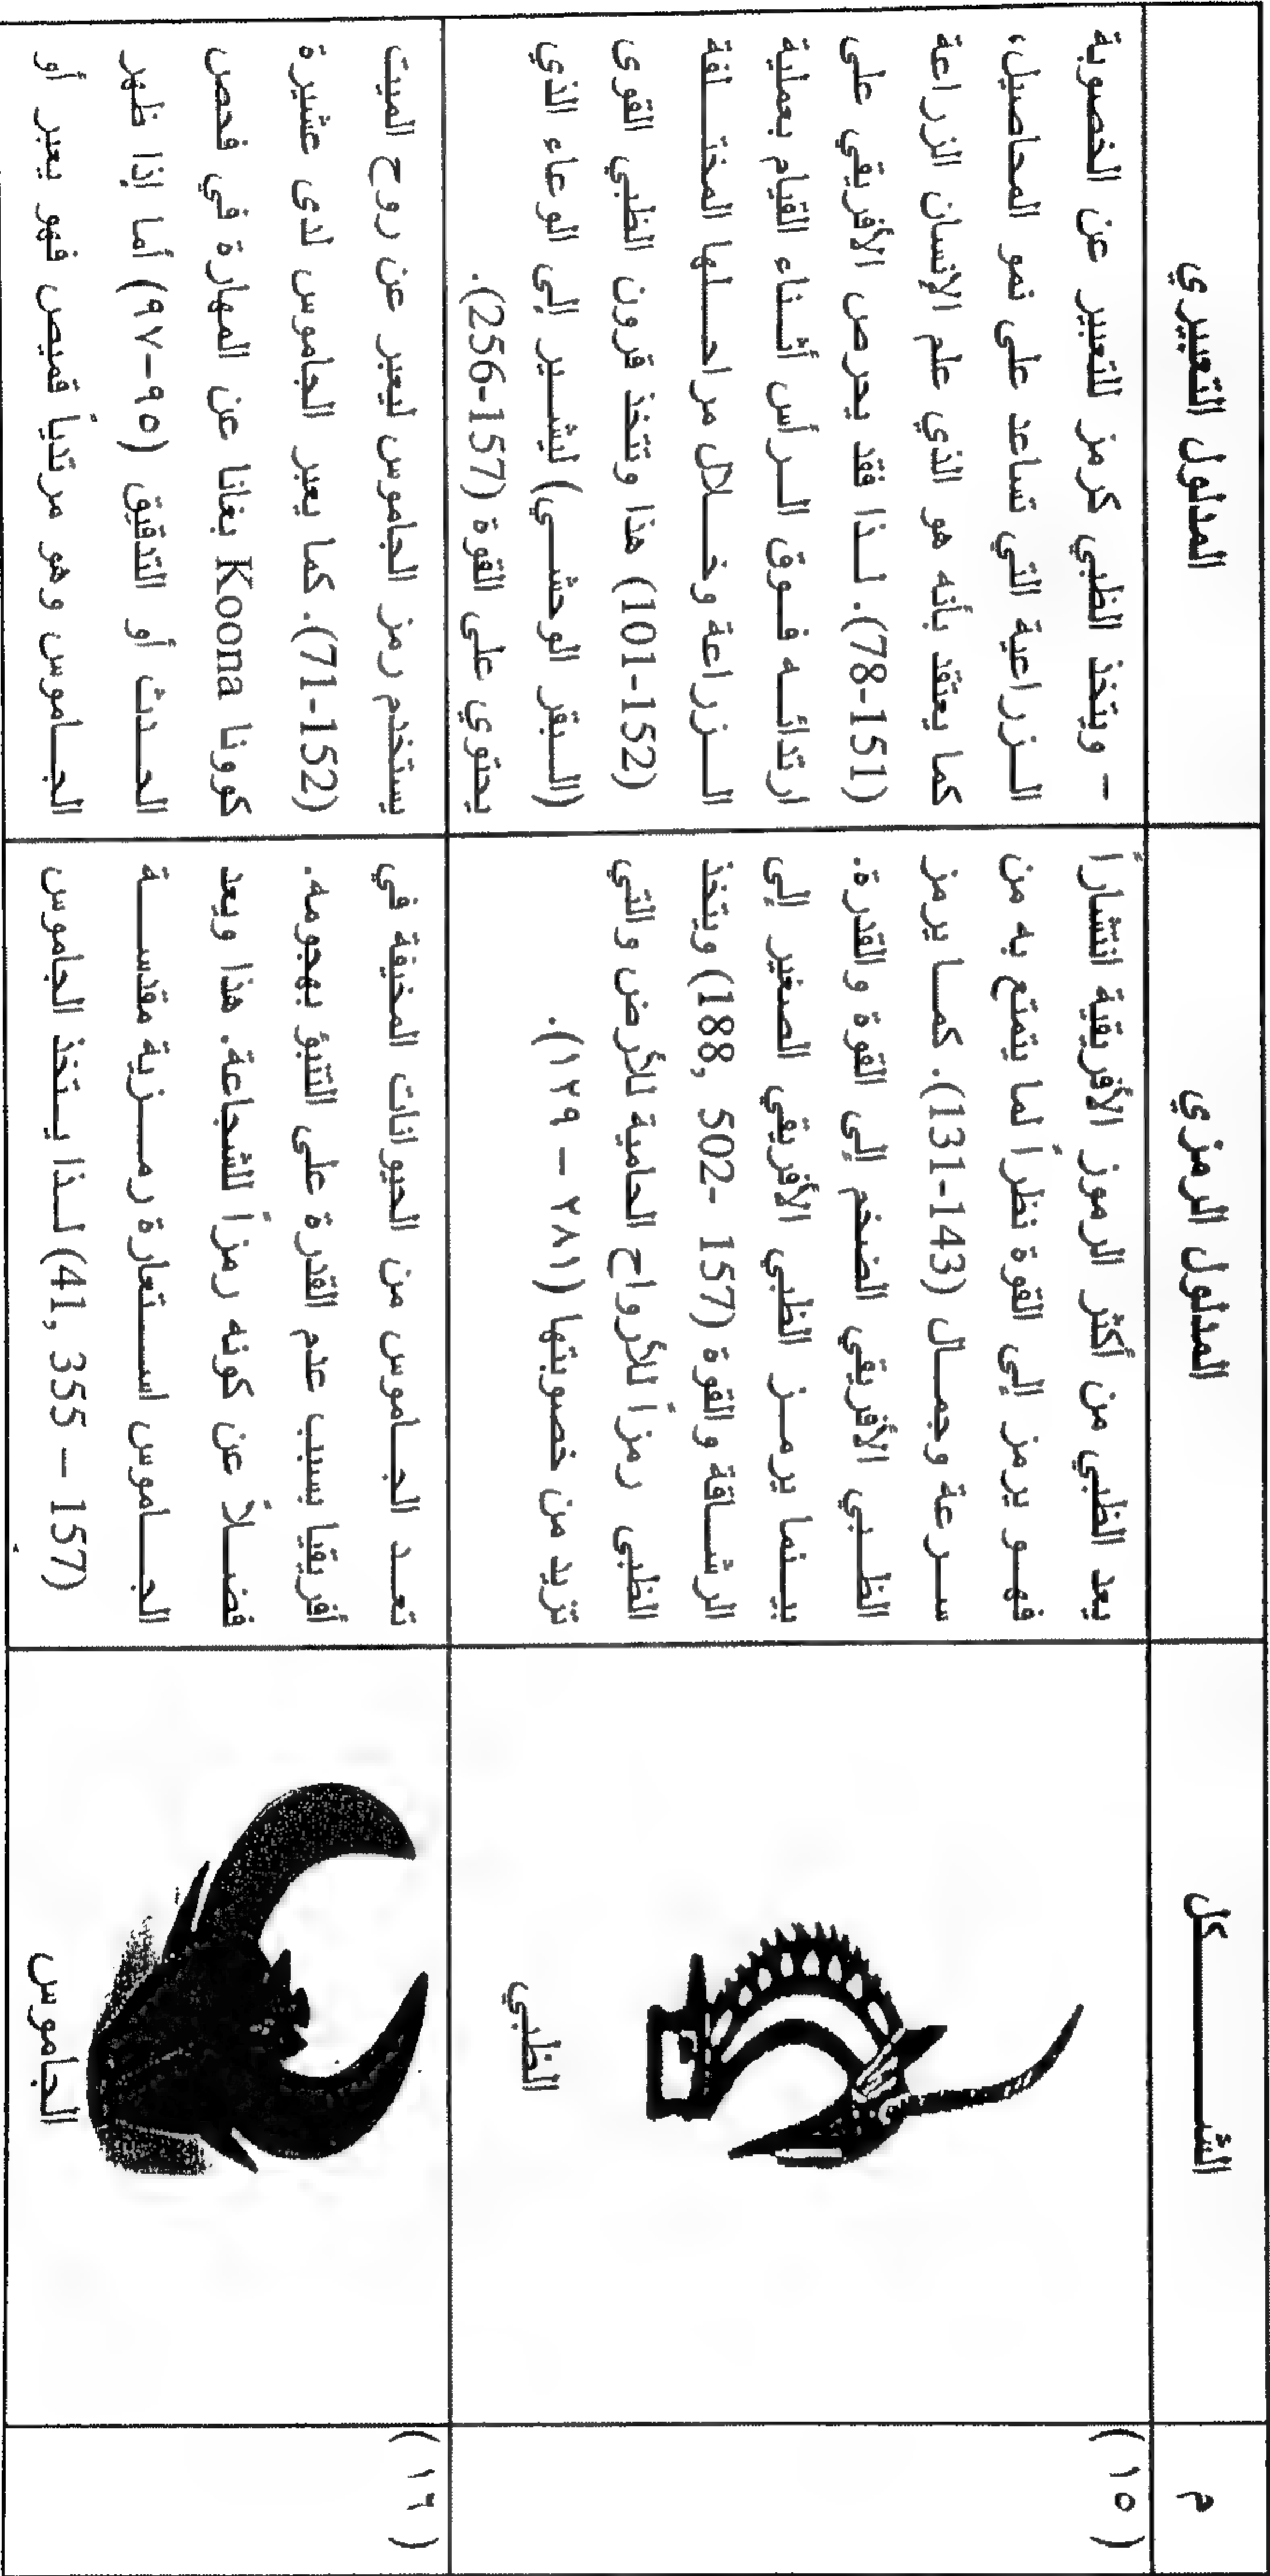 م
الشـــــكل
المدلول الرمزي
المدلول التعبيري
(١٥)
الظبي
يعد الظبي من أكثر الرموز الأفريقية انتشاراً
فهو يرمز إلى القوة نظراً لما يتمتع به من
سرعة وجمال (143-131). كما يرمز
الظبي الأفريقي الضخم إلى القوة والقدرة.
بينما يرمز الظبي الأفريقي الصغير إلى
الرشاقة والقوة (157 -502 ,188) ويتخذ
الظبي رمزاً للأرواح الحامية للأرض والتي
تزيد من خصوبتها (٢٨١ – ١٢٩).
- ويتخذ الظبي كرمز للتعبير عن الخصوبة
الزراعية التي تساعد على نمو المحاصيل،
كما يعتقد بأنه هو الذي علم الإنسان الزراعة
(151-78). لذا فقد يحرص الأفريقي على
ارتدائه فوق الرأس أثناء القيام بعملية
الزراعة وخلال مراحلها المختلفة
(152-101) هذا وتتخذ قرون الظبي القوى
(البقر الوحشي) ليشير إلى الوعاء الذي
يحتوي على القوة (157-256).
(١٦)
الجاموس
تعد الجاموس من الحيوانات المخيفة في
أفريقيا بسبب عدم القدرة على التنبؤ بهجومه.
فضلاً عن كونه رمزاً للشجاعة. هذا ويعد
الجاموس استعارة رمزية مقدسة
(157 – 355 ,41) لذا يتخذ الجاموس
يستخدم رمز الجاموس ليعبر عن روح الميت
(152-71). كما يعبر الجاموس لدى عشيرة
كوونا Koona بغانا عن المهارة في فحص
الحدث أو التدقيق (٩٥-٩٧) أما إذا ظهر
الجاموس وهو مرتدياً قميص فهو يعبر أو